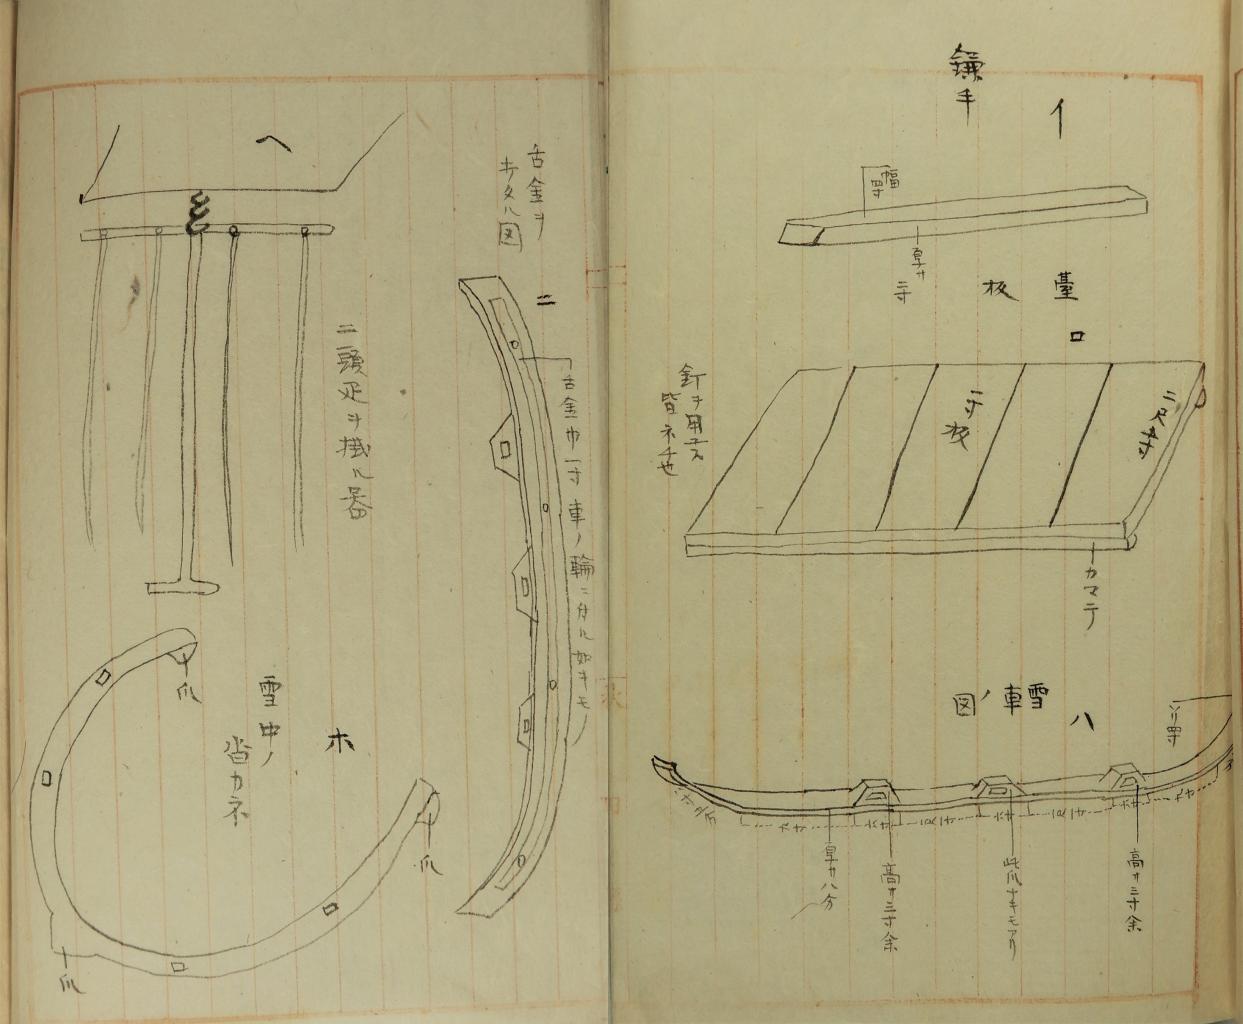 イ
鎌手
幅四寸
厚サ二寸
臺板
ロ
二尺五寸
一寸板
釘ヲ用エス
皆ネチ也
カマテ
ハ
雪車ノ図
ソリ四寸
高サ三寸余
此爪ナキモアリ
高サ三寸余
厚サ八分
舌金ヲ
キタル図
ニ
舌金巾一寸車ノ輪ニ付ル如キモノ
ヘ
二頭疋ヲ掛ル器
ホ
雪中ノ
沓カネ
爪
爪
爪